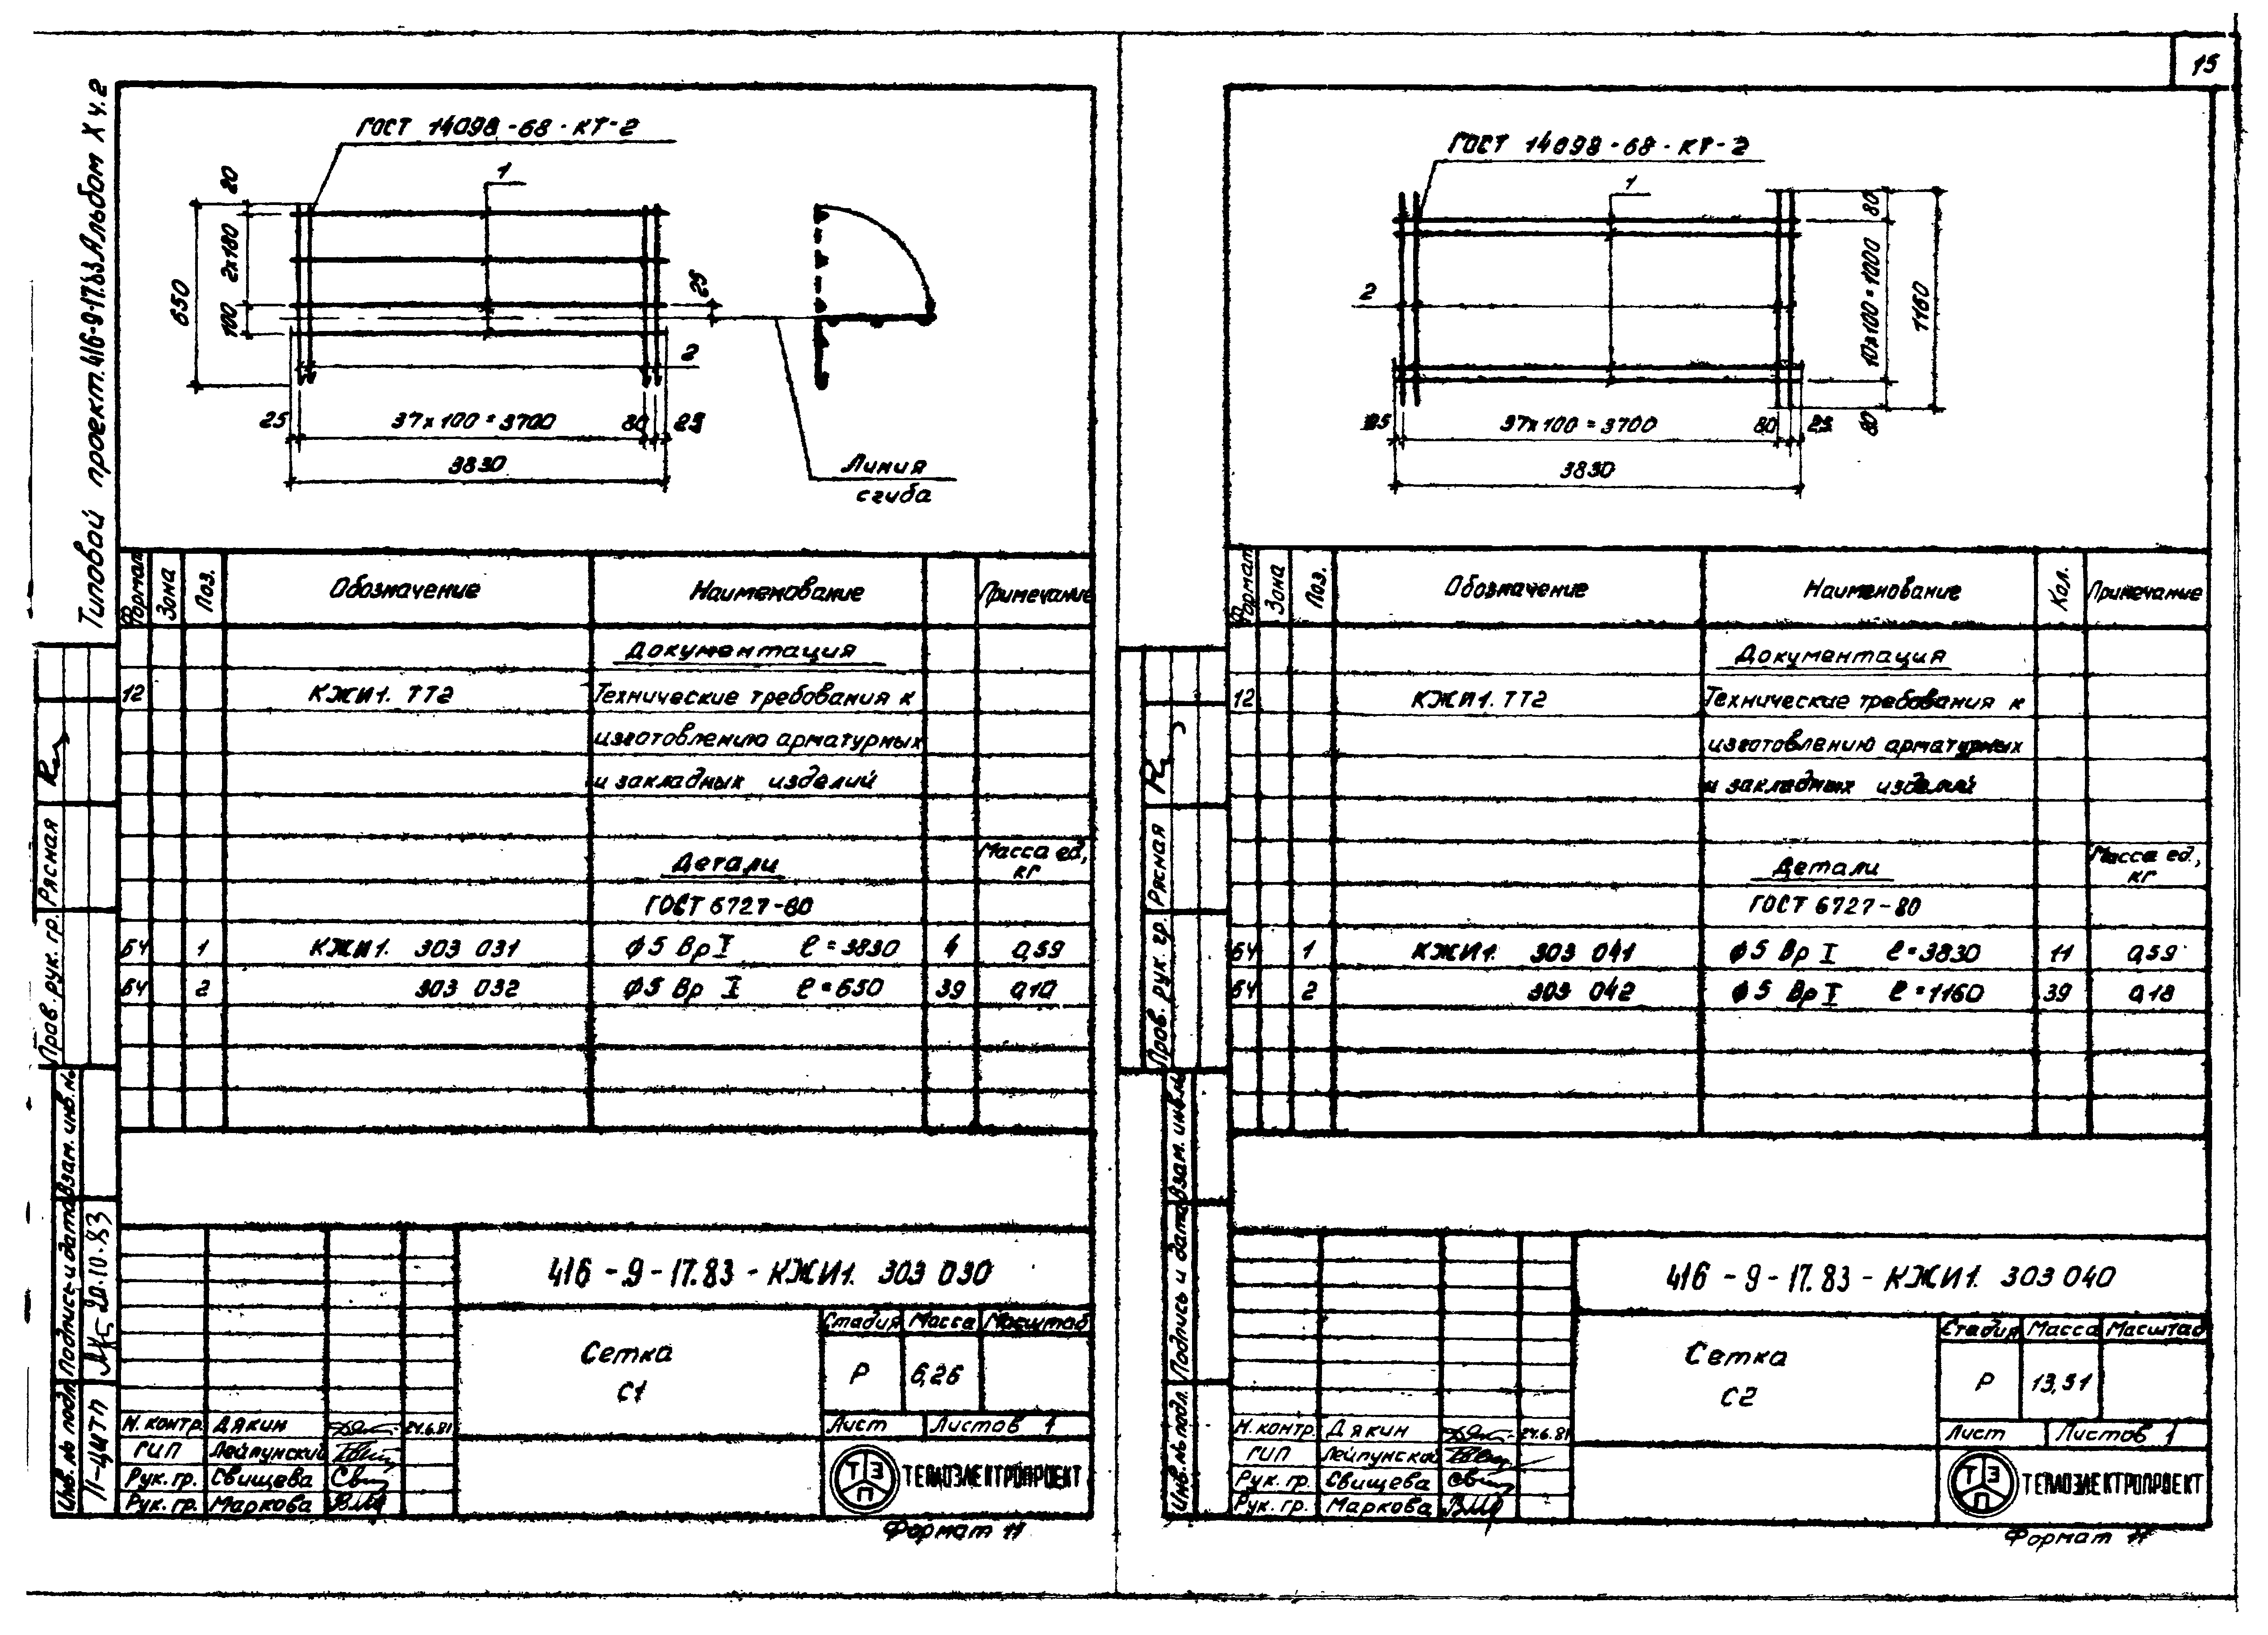 15
Типовой проект 416-9-17.83 Альбом X ч.2
ГОСТ 14098-68-КТ-2
1
20
2х180
100
650
25
2
25
37х100=3700
80
25
3830
Линия
сгиба
Формат
Зона
Поз.
Обозначение
Наименование
Примечание
Документация
12
КЖИ1. ТТ2
Технические требования к
изготовлению арматурных
и закладных изделий
Детали
Масса ед.,
кг
ГОСТ 6727-80
БЧ 1 КЖИ1. 303 031 ф5 Вр I ℓ=3830 4 0,59
БЧ 2 303 032 ф5 Вр I ℓ=650 39 0,10
Пров. рук. гр. Рясная
Инв.№ подл. Подпись и дата Взам. инв.№
20.10.83
416-9-17.83-КЖИ1. 303 030
Сетка
С1
Стадия Масса Масштаб
Р 6,26
Лист Листов 1
Н.контр. Дякин 24.6.81
ГИП Лейпунский
Рук. гр. Свищева
Рук. гр. Маркова
ТЭП
ТЕПЛОЭЛЕКТРОПРОЕКТ
Формат 11
ГОСТ 14098-68-КТ-2
1
2
80
10х100=1000
1160
80
25
37х100=3700
80
25
3830
Формат
Зона
Поз.
Обозначение
Наименование
Кол.
Примечание
Документация
12
КЖИ1. ТТ2
Технические требования к
изготовлению арматурных
и закладных изделий
Детали
Масса ед.,
кг
ГОСТ 6727-80
БЧ 1 КЖИ1. 303 041 ф5 Вр I ℓ=3830 11 0,59
БЧ 2 303 042 ф5 Вр I ℓ=1160 39 0,18
Пров. рук. гр. Рясная
Инв.№ подл. Подпись и дата Взам. инв.№
416-9-17.83-КЖИ1. 303 040
Сетка
С2
Стадия Масса Масштаб
Р 13,51
Лист Листов 1
Н.контр. Дякин 24.6.81
ГИП Лейпунский
Рук. гр. Свищева
Рук. гр. Маркова
ТЭП
ТЕПЛОЭЛЕКТРОПРОЕКТ
Формат 11